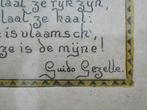 laat ze rijk zijn,
laat ze kaal:
is vlaamsch,
ze is de mijne!
Guido Gezelle.